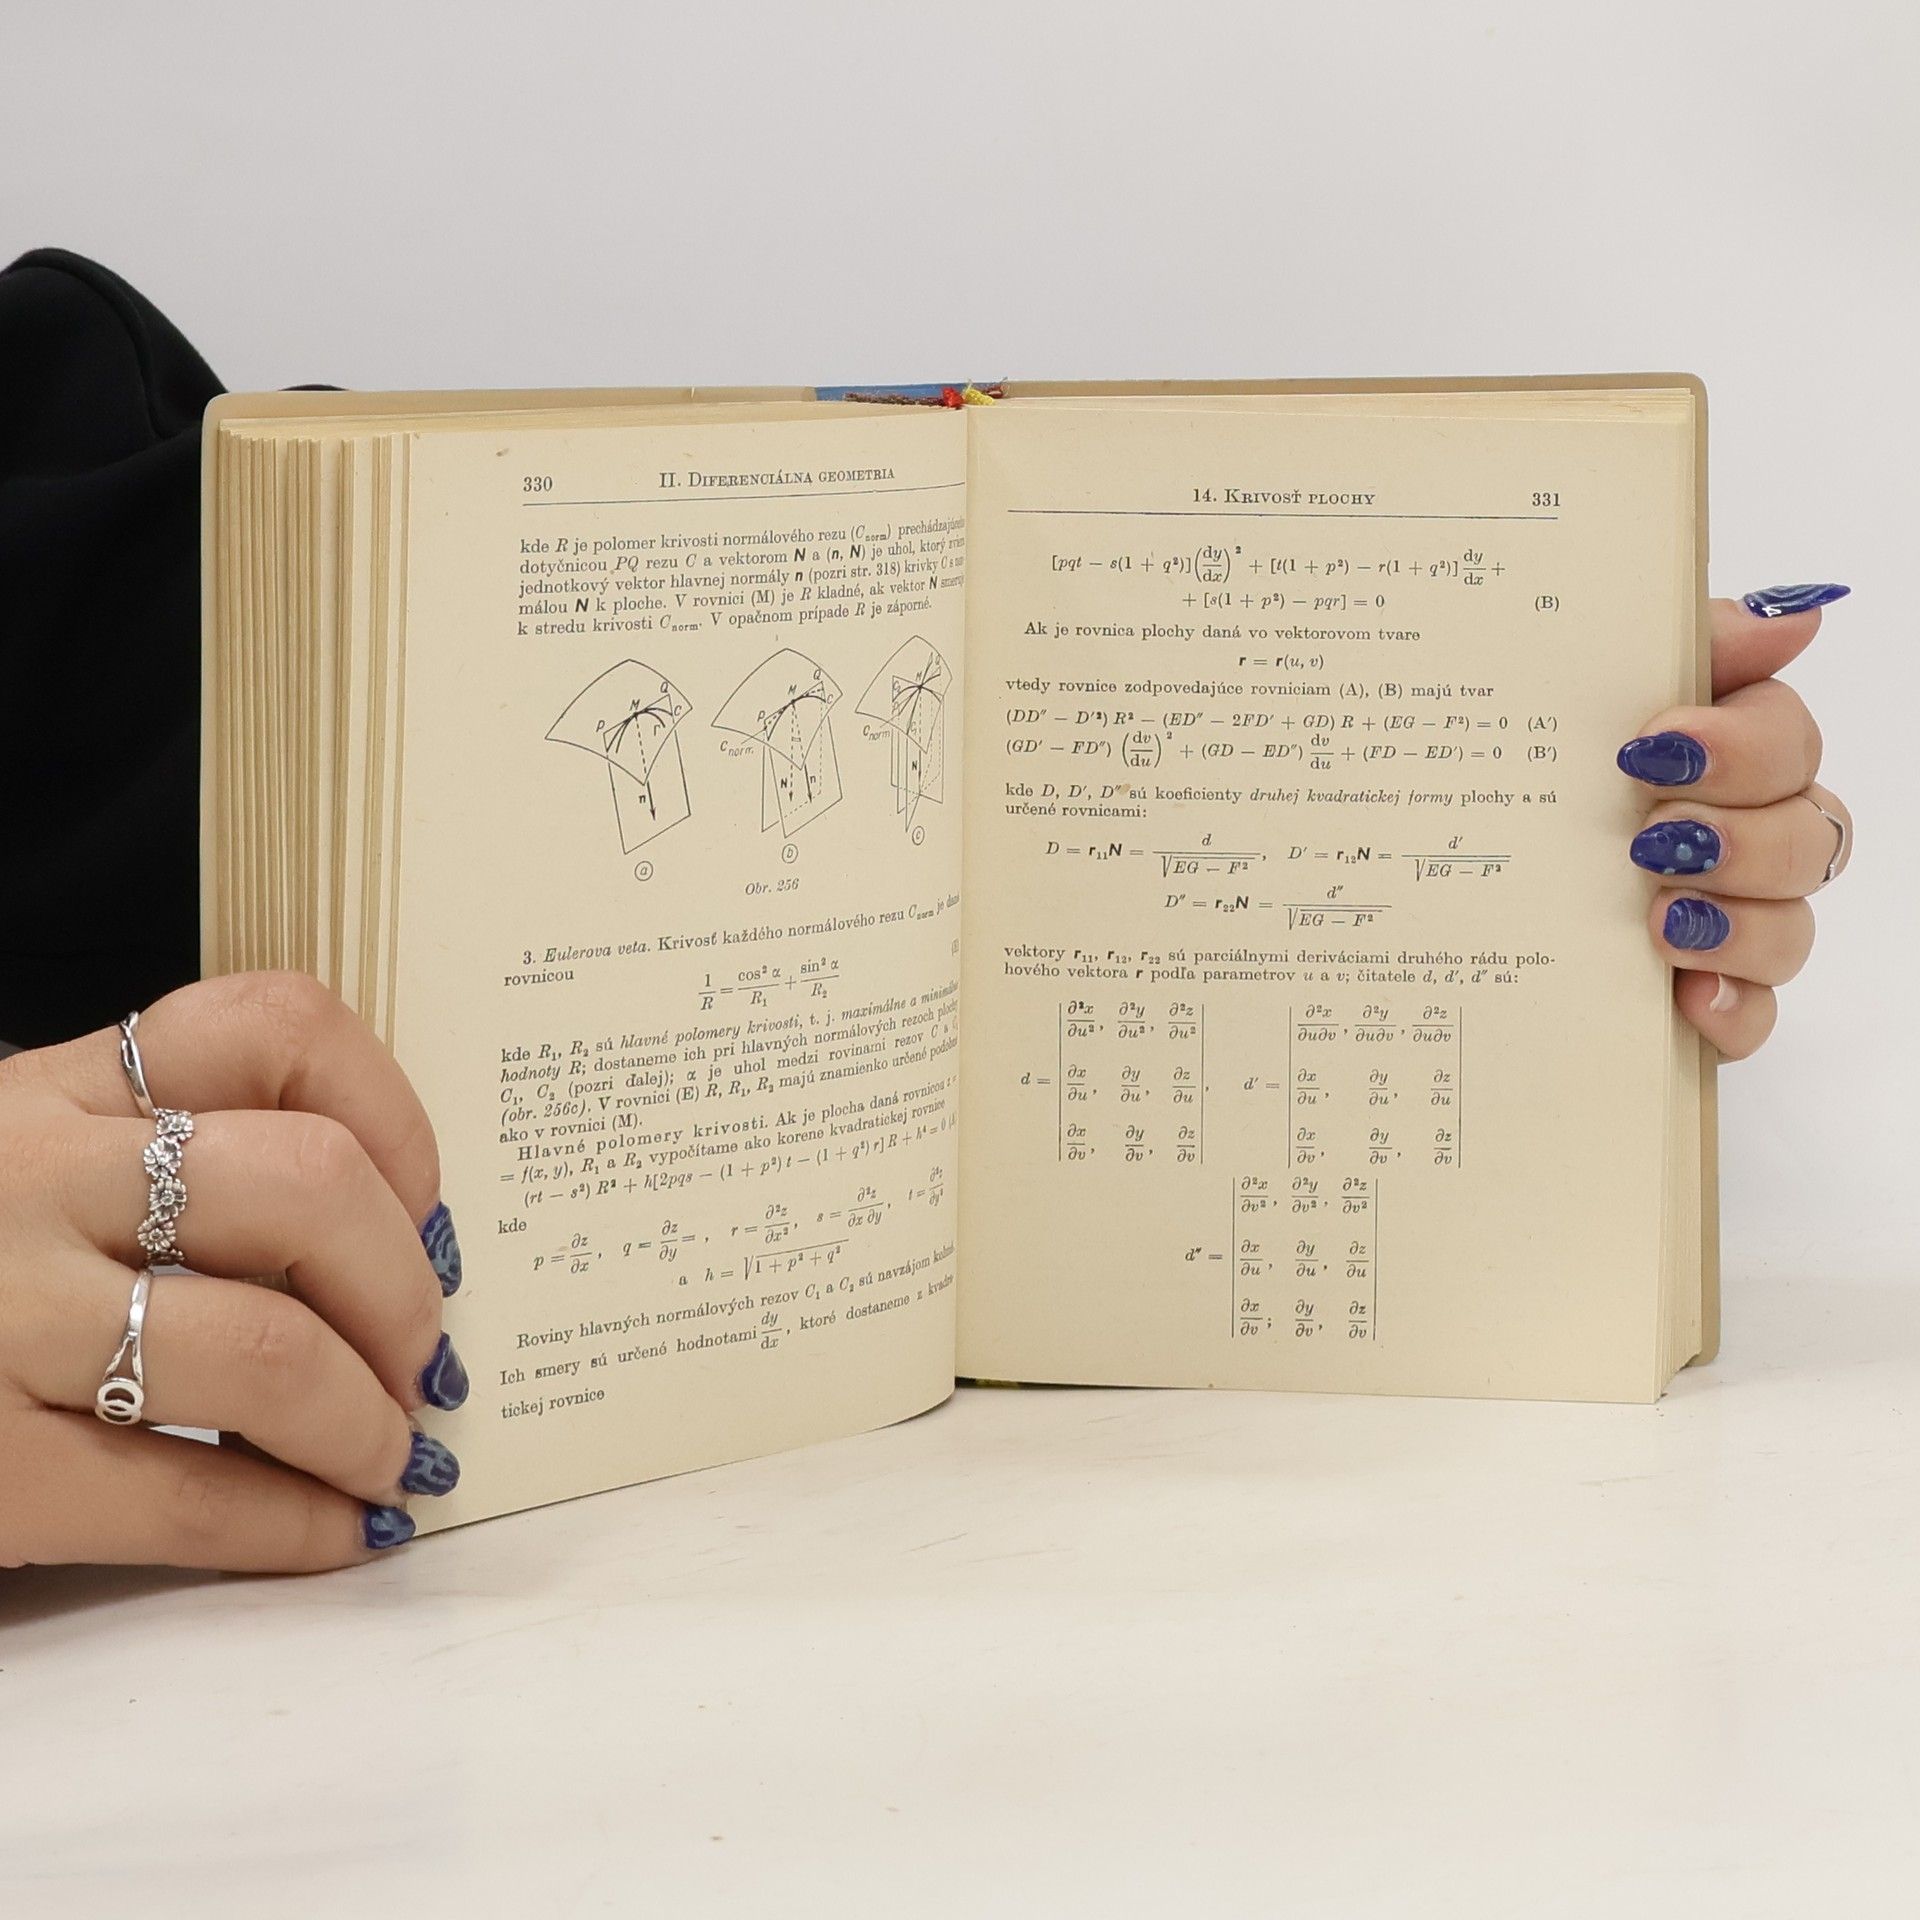 330 II. Diferenciálna geometria
kde R je polomer krivosti normálového rezu (C_norm) prechádzajúceho
dotyčnicou PQ rezu C a vektorom N a (n, N) je uhol, ktorý
jednotkový vektor hlavnej normály n (pozri str. 318) krivky C s
málou N k ploche. V rovnici (M) je R kladné, ak vektor N smeruje
k stredu krivosti C_norm. V opačnom prípade R je záporné.
P M Q C r n
P M Q C C_norm. N n
M Q C_norm N
a b c
Obr. 256
3. Eulerova veta. Krivosť každého normálového rezu C_norm je daná
rovnicou
1/R = cos² α/R₁ + sin² α/R₂
kde R₁, R₂ sú hlavné polomery krivosti, t. j. maximálne a minimálne
hodnoty R; dostaneme ich pri hlavných normálových rezoch plochy
C₁, C₂ (pozri ďalej); α je uhol medzi rovinami rezov C a
(obr. 256c). V rovnici (E) R, R₁, R₂ majú znamienko určené podobne
ako v rovnici (M).
Hlavné polomery krivosti. Ak je plocha daná rovnicou z =
= f(x, y), R₁ a R₂ vypočítame ako korene kvadratickej rovnice
(rt − s²) R² + h[2pqs − (1 + p²) t − (1 + q²) r] R + h⁴ = 0
kde
p = ∂z/∂x, q = ∂z/∂y = , r = ∂²z/∂x², s = ∂²z/∂x ∂y, t = ∂²z/∂y²
a h = √(1 + p² + q²)
Roviny hlavných normálových rezov C₁ a C₂ sú navzájom kolmé.
Ich smery sú určené hodnotami dy/dx, ktoré dostaneme z kvadra-
tickej rovnice
14. Krivosť plochy 331
[pqt − s(1 + q²)](dy/dx)² + [t(1 + p²) − r(1 + q²)] dy/dx +
+ [s(1 + p²) − pqr] = 0 (B)
Ak je rovnica plochy daná vo vektorovom tvare
r = r(u, v)
vtedy rovnice zodpovedajúce rovniciam (A), (B) majú tvar
(DD″ − D′²) R² − (ED″ − 2FD′ + GD) R + (EG − F²) = 0 (A′)
(GD′ − FD″) (dv/du)² + (GD − ED″) dv/du + (FD − ED′) = 0 (B′)
kde D, D′, D″ sú koeficienty druhej kvadratickej formy plochy a sú
určené rovnicami:
D = r₁₁N = d/√(EG − F²), D′ = r₁₂N = d′/√(EG − F²)
D″ = r₂₂N = d″/√(EG − F²)
vektory r₁₁, r₁₂, r₂₂ sú parciálnymi deriváciami druhého rádu polo-
hového vektora r podľa parametrov u a v; čitatele d, d′, d″ sú:
∂²x/∂u², ∂²y/∂u², ∂²z/∂u² ∂²x/∂u∂v, ∂²y/∂u∂v, ∂²z/∂u∂v
d = ∂x/∂u, ∂y/∂u, ∂z/∂u , d′ = ∂x/∂u, ∂y/∂u, ∂z/∂u
∂x/∂v, ∂y/∂v, ∂z/∂v ∂x/∂v, ∂y/∂v, ∂z/∂v
∂²x/∂v², ∂²y/∂v², ∂²z/∂v²
d″ = ∂x/∂u, ∂y/∂u, ∂z/∂u
∂x/∂v; ∂y/∂v, ∂z/∂v